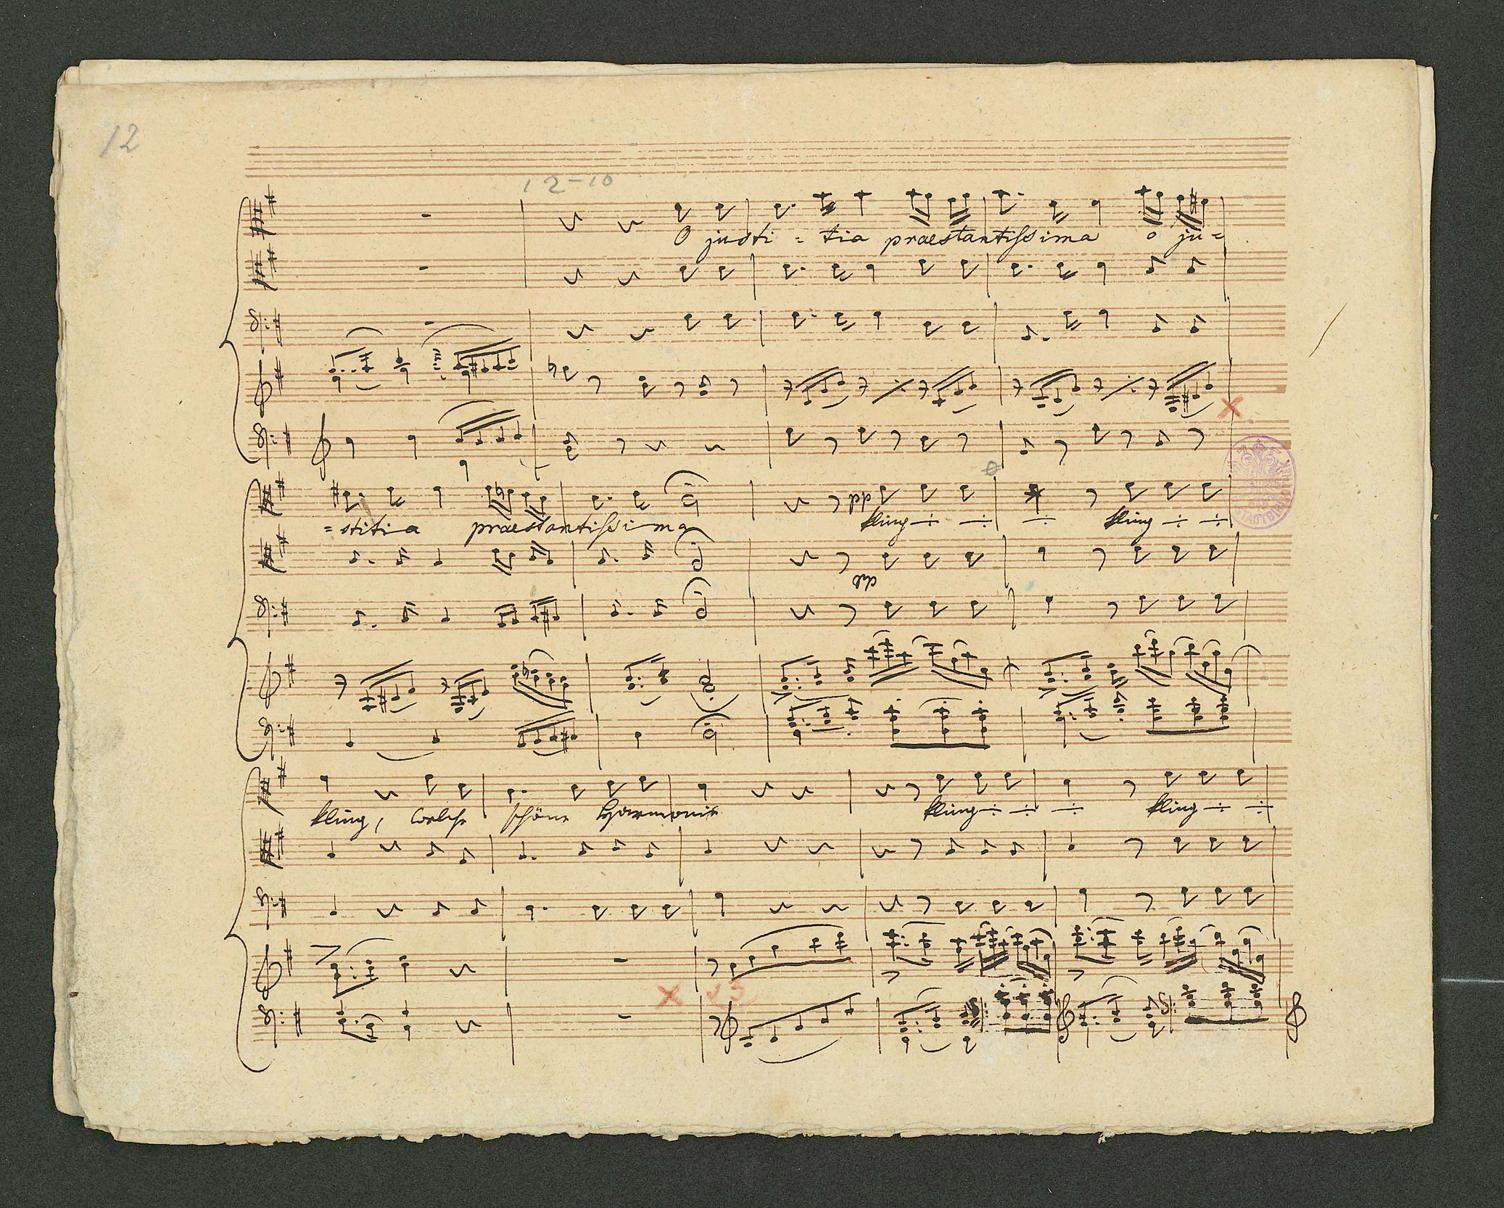 12
12-10
O justi = tia praestantissima o ju=
=stitia praestantissima
kling ÷ ÷ ÷ kling ÷ ÷
kling, welche schöne Harmonie kling ÷ ÷ ÷ kling ÷ ÷